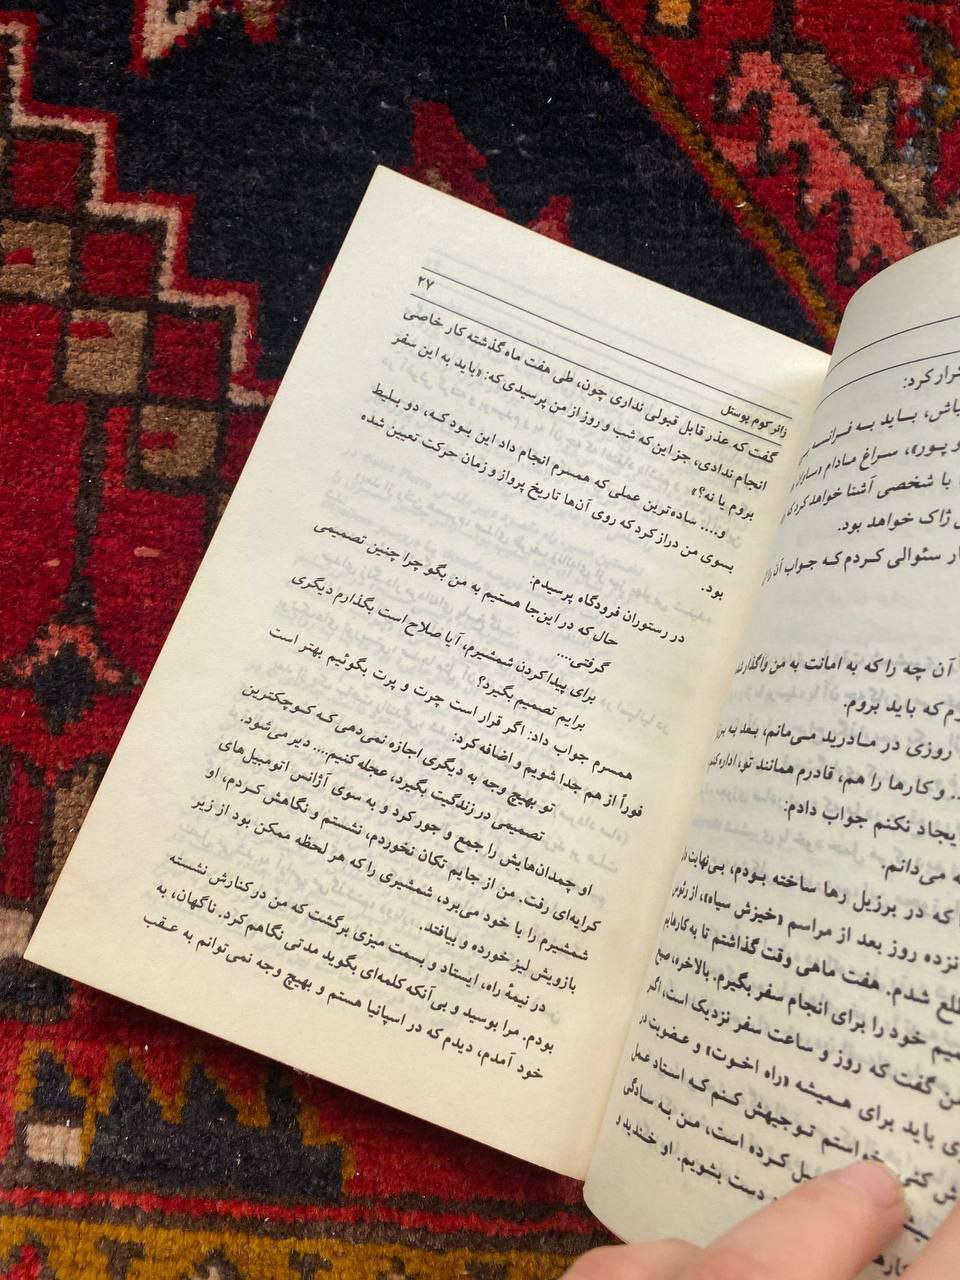 زائر کوم پوستل
۲۷
گفت که عذر قابل قبولی نداری چون، طی هفت ماه گذشته کار خاصی
انجام ندادی، جز این که شب و روز از من پرسیدی که: «باید به این سفر
بروم یا نه؟»
و.... ساده‌ترین عملی که همسرم انجام داد این بود که، دو بلیط
بسوی من دراز کرد که روی آن‌ها تاریخ پرواز و زمان حرکت تعیین شده
بود.
در رستوران فرودگاه پرسیدم:
حال که در این‌جا هستیم به من بگو چرا چنین تصمیمی
گرفتی....
برای پیدا کردن شمشیرم، آیا صلاح است بگذارم دیگری
برایم تصمیم بگیرد؟
همسرم جواب داد: اگر قرار است چرت و پرت بگوئیم بهتر است
فوراً از هم جدا شویم و اضافه کرد:
تو بهیچ وجه به دیگری اجازه نمی‌دهی که کوچکترین
تصمیمی در زندگیت بگیرد، عجله کنیم.... دیر می‌شود.
او چمدان‌هایش را جمع و جور کرد و به سوی آژانس اتومبیل‌های
کرایه‌ای رفت. من از جایم تکان نخوردم، نشستم و نگاهش کردم، او
شمشیرم را با خود می‌برد، شمشیری را که هر لحظه ممکن بود از زیر
بازویش لیز خورده و بیافتد.
در نیمهٔ راه، ایستاد و بسمت میزی برگشت که من در کنارش نشسته
بودم. مرا بوسید و بی‌آنکه کلمه‌ای بگوید مدتی نگاهم کرد. ناگهان، به
خود آمدم، دیدم که در اسپانیا هستم و بهیچ وجه نمی‌توانم به عقب
کرد:
باش، باید به فرانسه
پور»، سراغ مادام
با شخصی آشنا خواهد کرد که
ژاک خواهد بود.
سئوالی کردم که جواب آن
آن چه را که به امانت به من
که باید بروم.
روزی در مادرید می‌مانم، بعد به
.. و کارها را هم، قادرم همانند تو، اداره
ایجاد نکنم جواب دادم:
می‌دانم.
که در برزیل رها ساخته بودم، بی‌نهایت
روز بعد از مراسم «خیزش سیاه»، از
شدم. هفت ماهی وقت گذاشتم تا به کارهایم
خود را برای انجام سفر بگیرم. بالاخره، صبح
گفت که روز و ساعت سفر نزدیک است، اگر
باید برای همیشه «راه اخوت» و عضویت در
کنی. خواستم توجیهش کنم که استاد عمل
کرده است، من به سادگی
دست بشویم. او خندید و